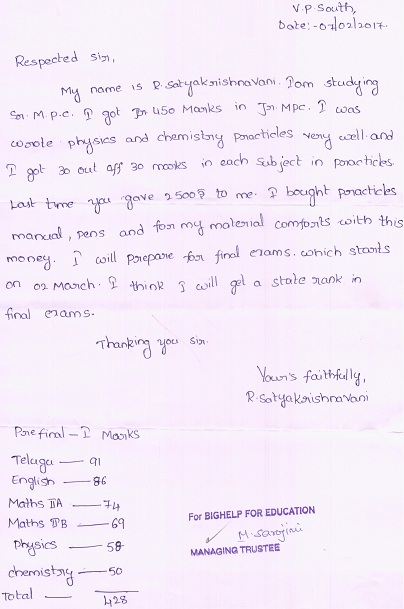 V.P South,
Date:- 07/02/2017.
Respected sir,
My name is R.Satyakrishnavani. I am studying
Sr. M.p.c. I got 450 Marks in Jr. Mpc. I was
wrote physics and chemistry practicles very well and
I got 30 out off 30 marks in each subject in practicles.
Last time you gave 2500₹ to me. I bought practicles
manual, pens and for my material comforts with this
money. I will prepare for final exams. which starts
on 02 March. I think I will get a state rank in
final exams.
Thanking you sir.
Your's faithfully,
R.Satyakrishnavani
Prefinal - I Marks
Telugu — 91
English — 86
Maths IIA — 74
Maths IIB — 69
physics — 58
chemistry — 50
Total — 428
For BIGHELP FOR EDUCATION
M. Sarojini
MANAGING TRUSTEE